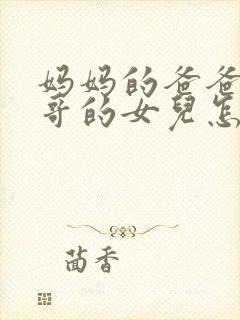 妈妈的爸爸
哥的女兒怎
茴香